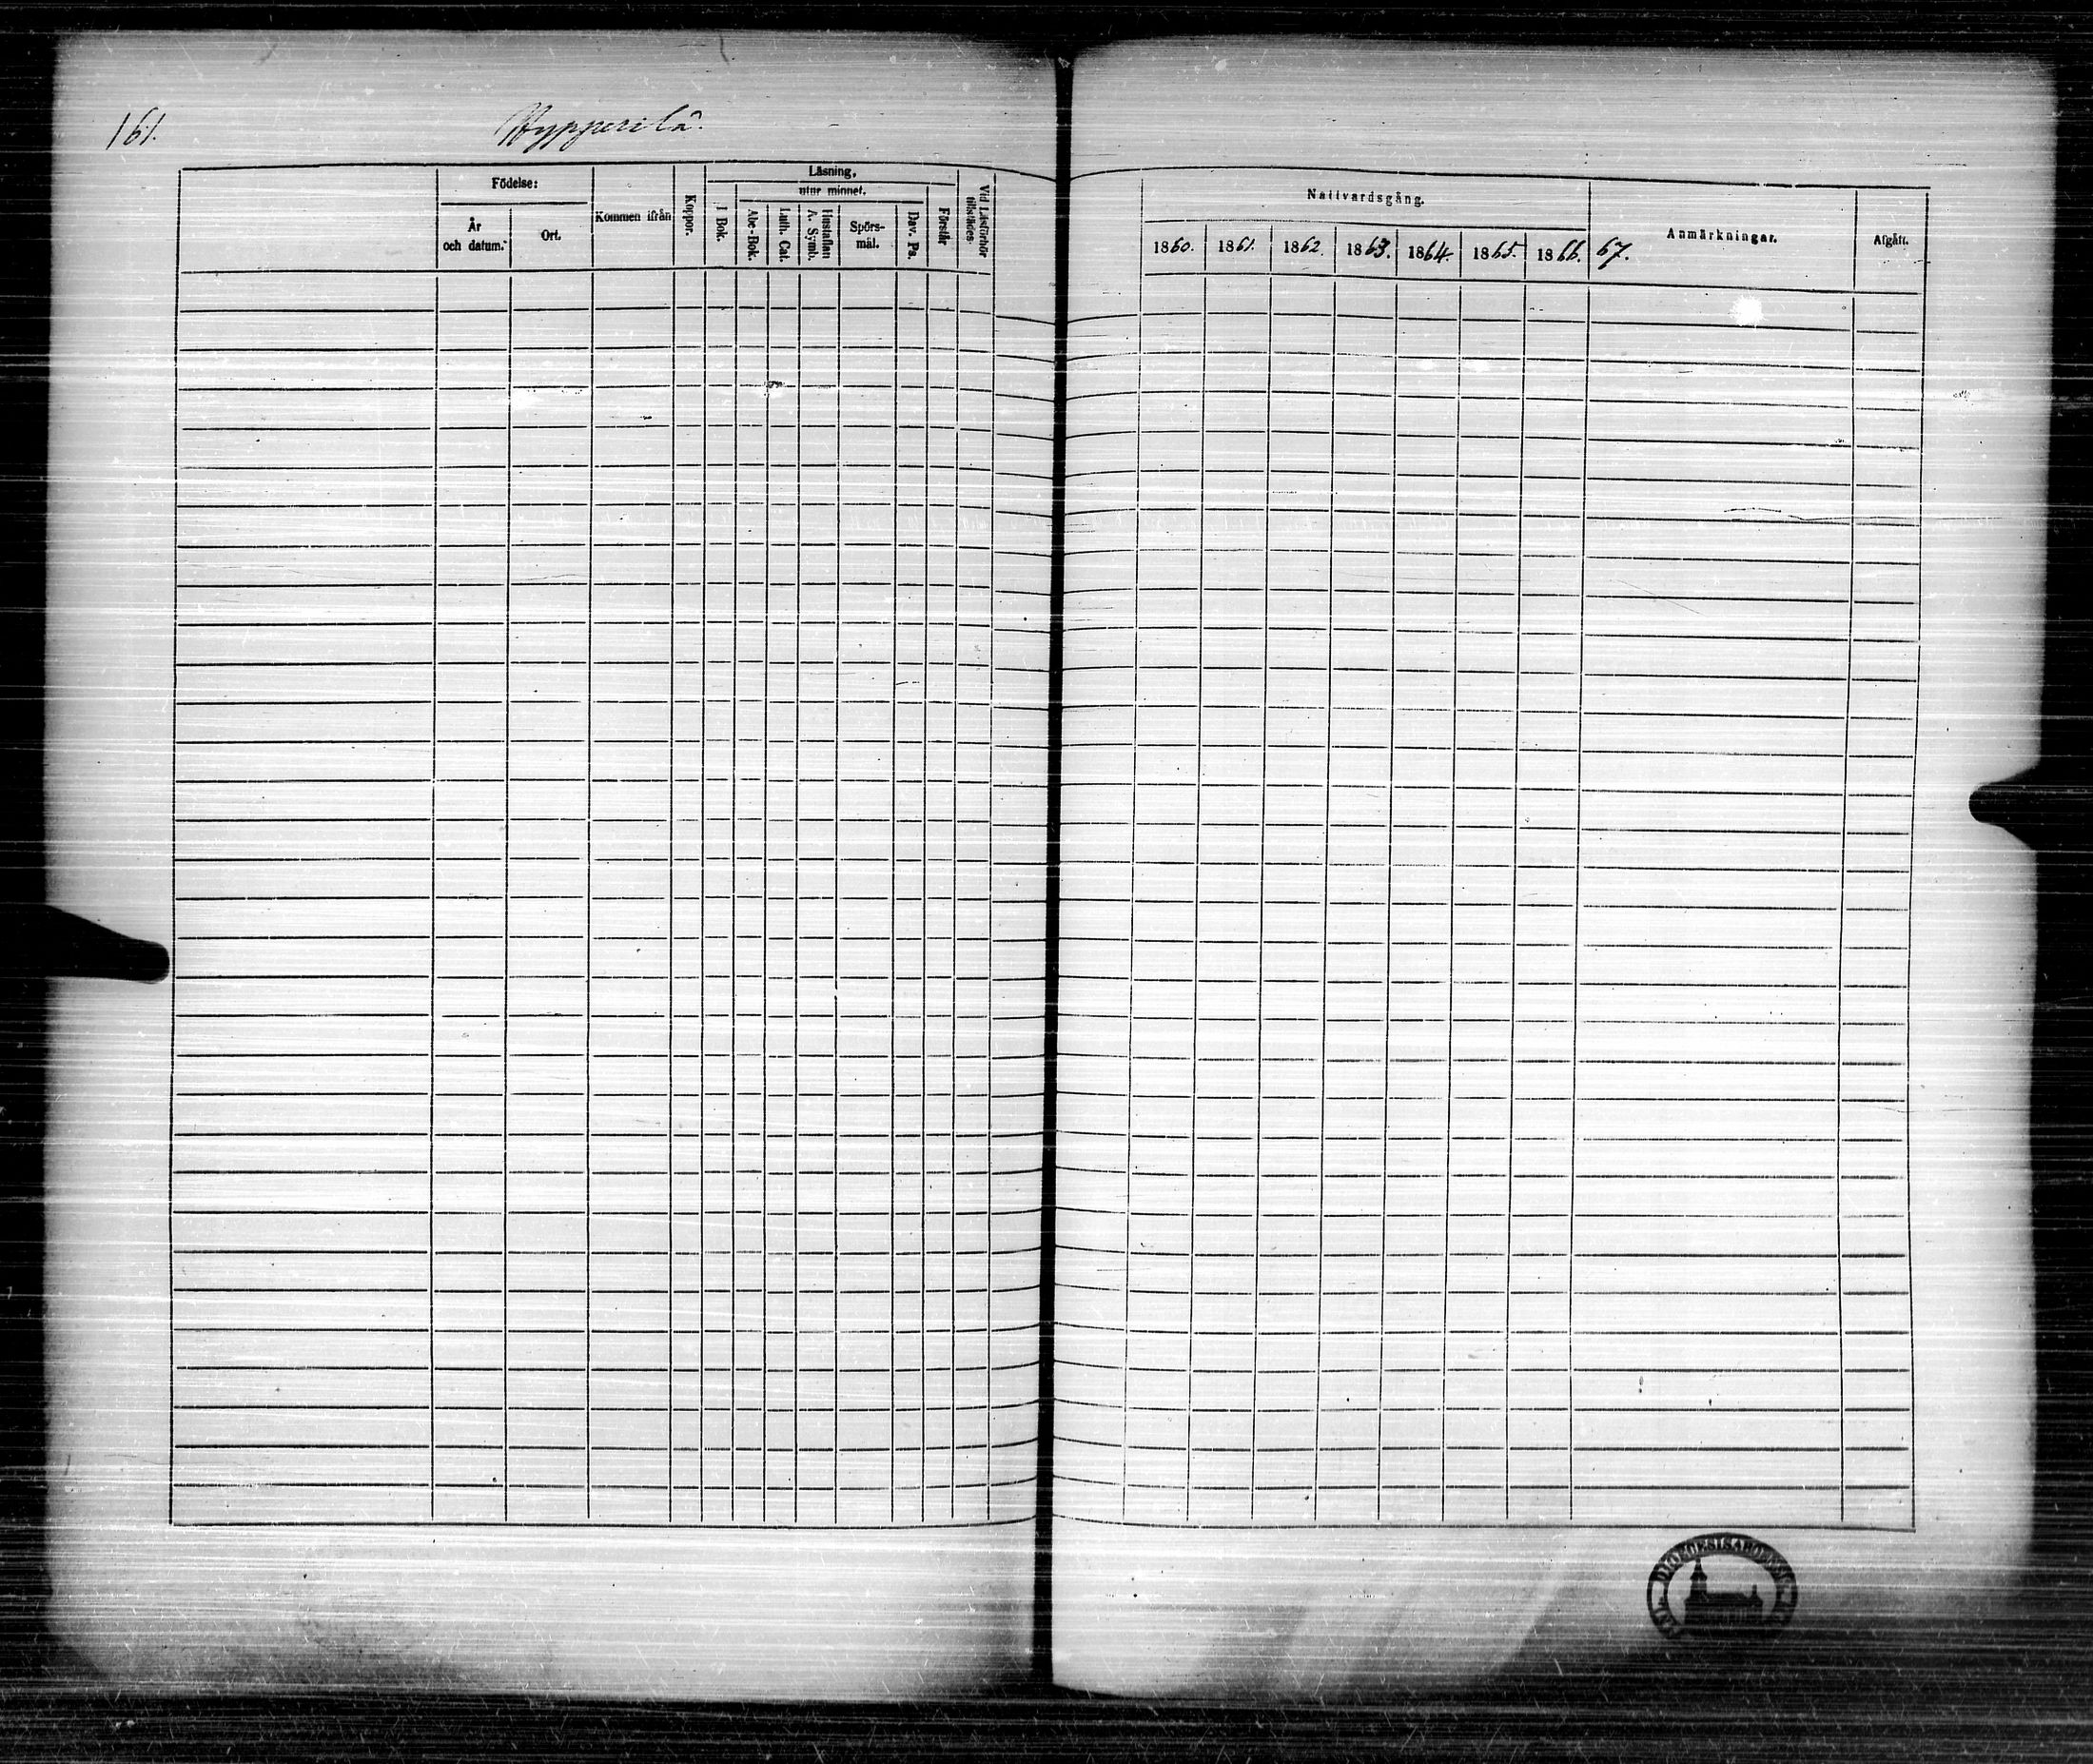 161.
Hypperilä.
Födelse:
År och datum.
Ort.
Kommen ifrån
Koppor.
Läsning,
I Bok.
utur minnet.
Abc-Bok.
Luth. Cat.
Hustaflan A. Symb.
Spörs-mål.
Dav. Ps.
Förstår
Vid Läsförhör tillstädes.
Nattvardsgång.
1860. 1861. 1862. 1863. 1864. 1865. 1866. 67.
Anmärkningar.
Afgått.
DIOECESIS ABOENSIS